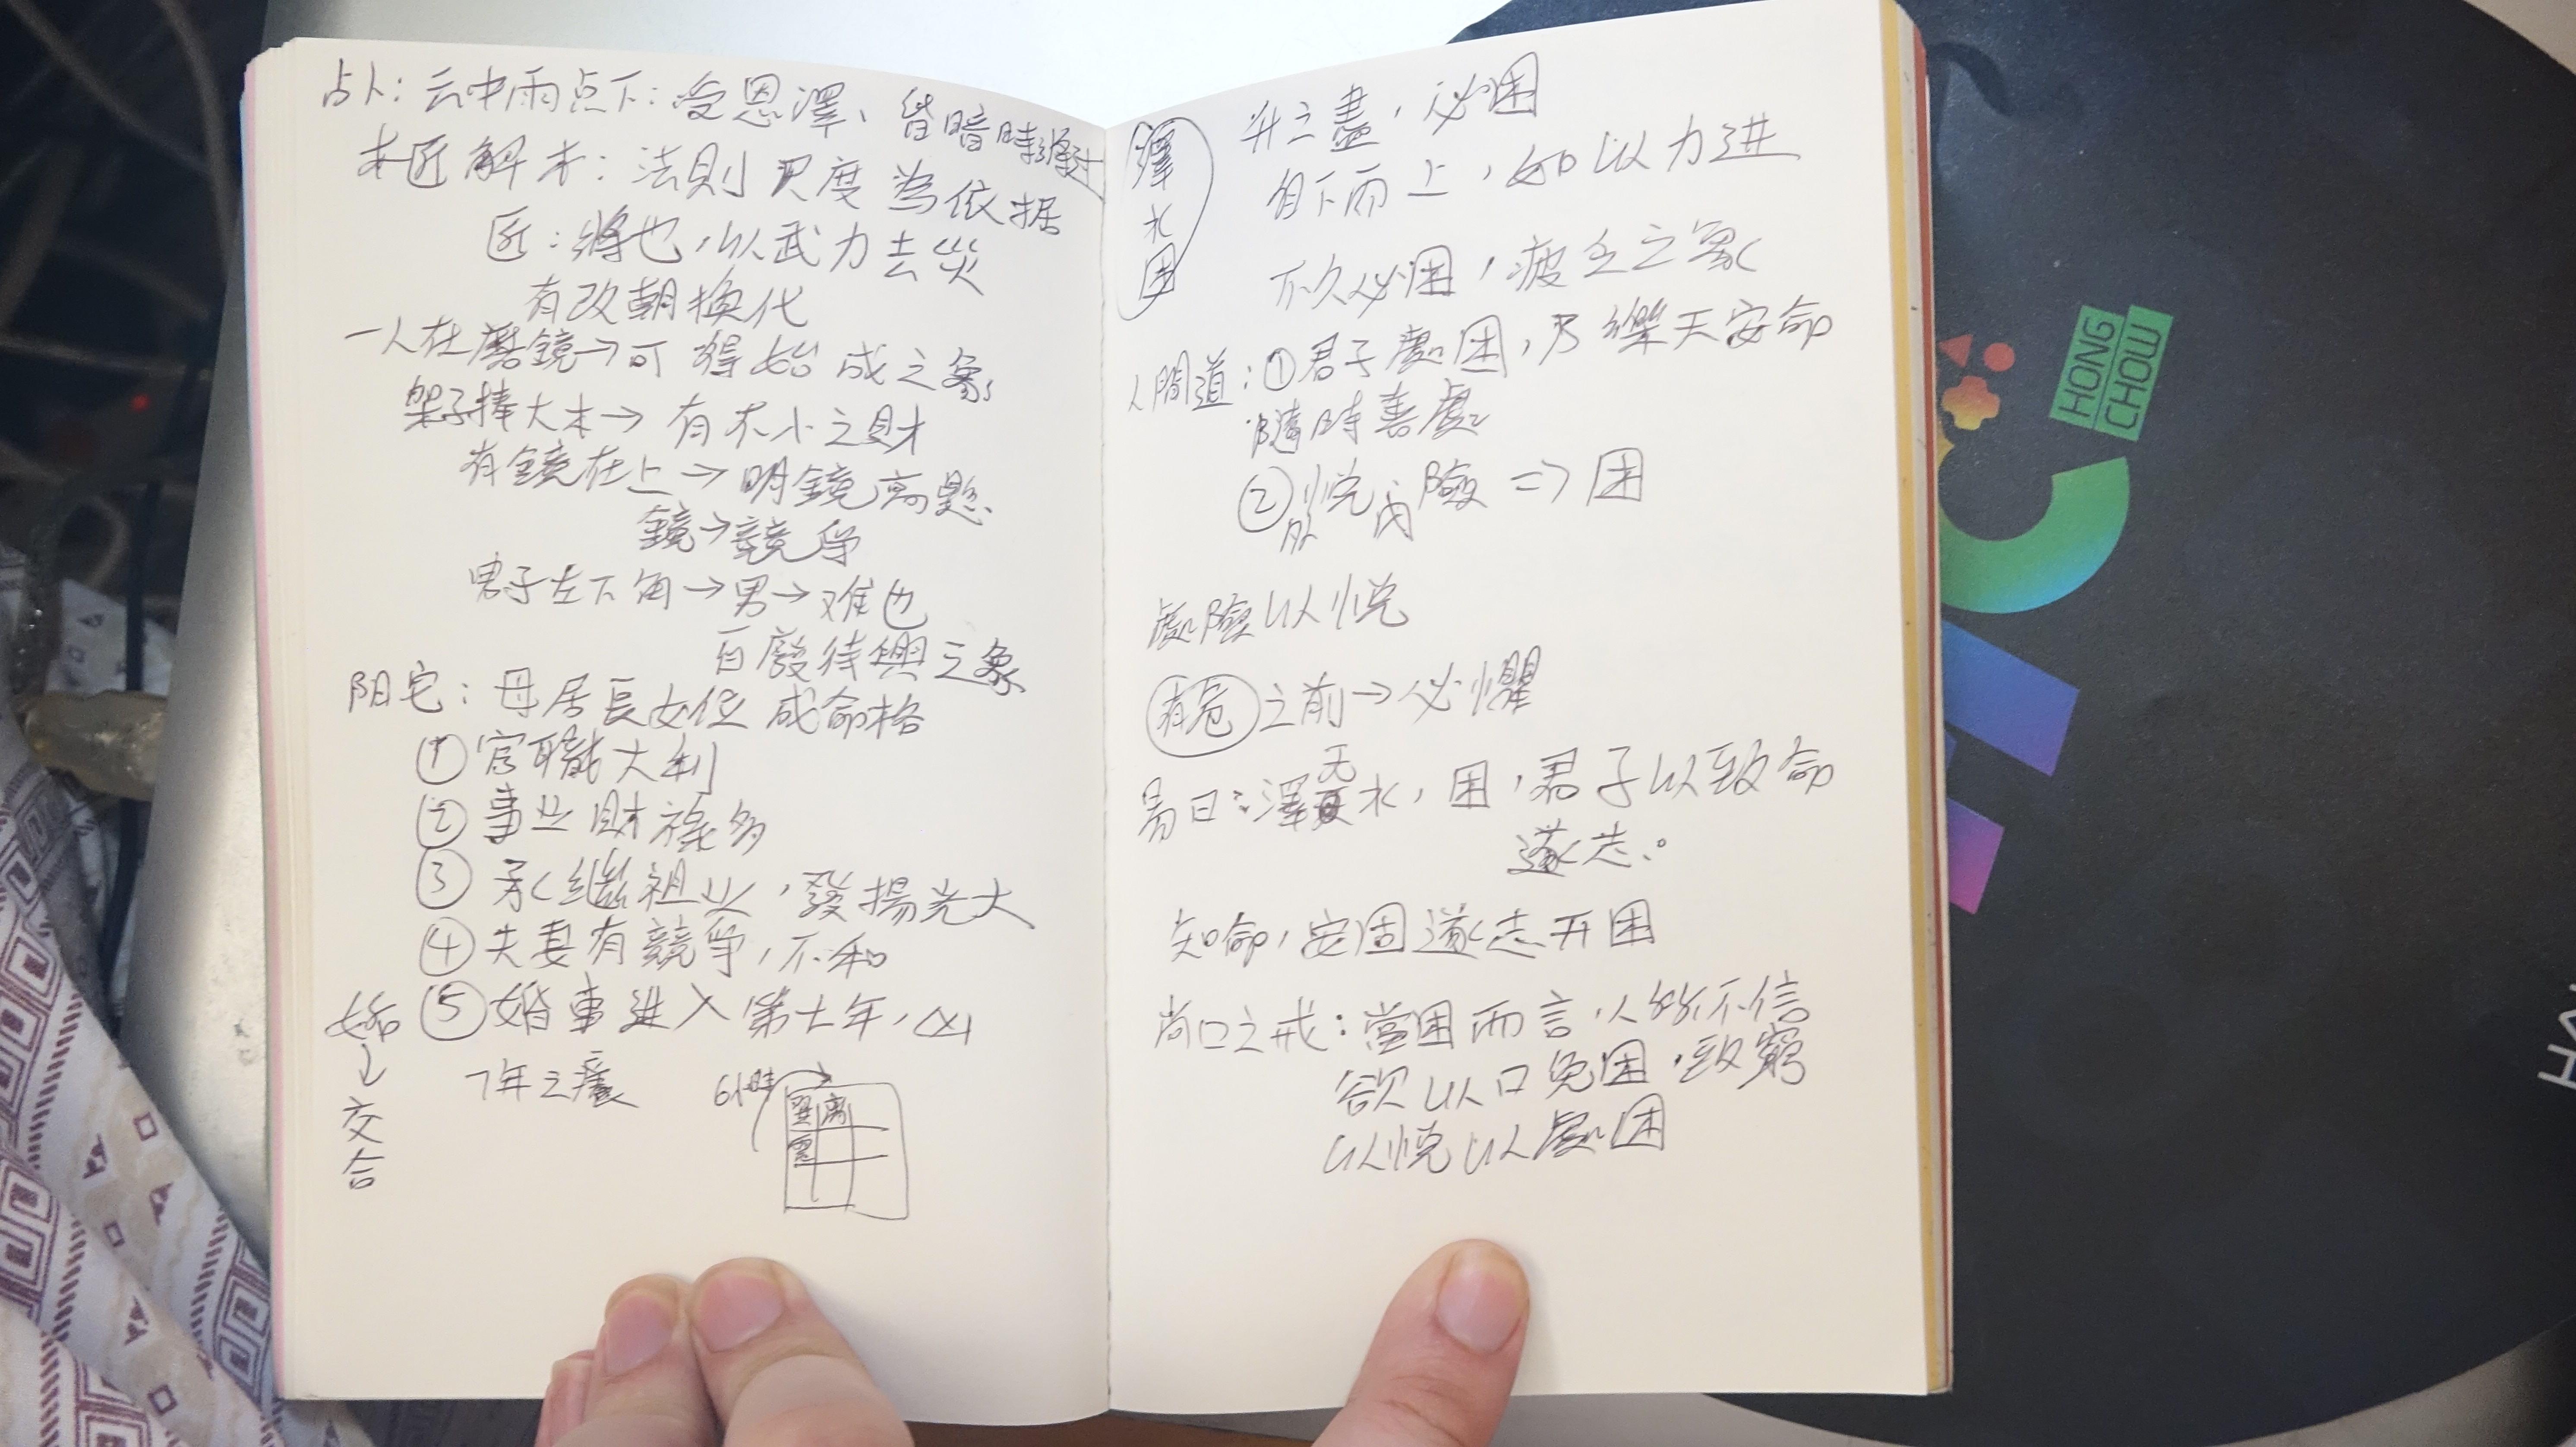 占卜：云中雨点下：受恩澤、皆暗時過
木匠解木：法則尺度為依据
匠：將也，以武力去災
有改朝換代
一人在磨鏡→可得始成之象
架子捧大木→有不小之財
有鏡在上→明鏡高懸
鏡→競爭
男子左下角→男→难也
百廢待興之象
阳宅：母居長女位 成命格
① 官職大利
② 事业財祿多
③ 承繼祖业，發揚光大
④ 夫妻有競爭，不和
⑤ 婚事進入第七年，凶
7年之癢
姤
↓
交
合
6小時
巽 离
震
澤
水
困
升之盡，必困
自下而上，如以力进
不久必困，疲乏之象
人間道：①君子處困，乃樂天安命
隨時善處
② 悦 險 => 困
外 内
處險以悦
有危之前→必懼
易曰：澤无水，困，君子以致命
遂志。
知命，安固遂志开困
尚口之戒：當困而言，人所不信
欲以口免困，致窮
以悦以處困
HONG
CHOW